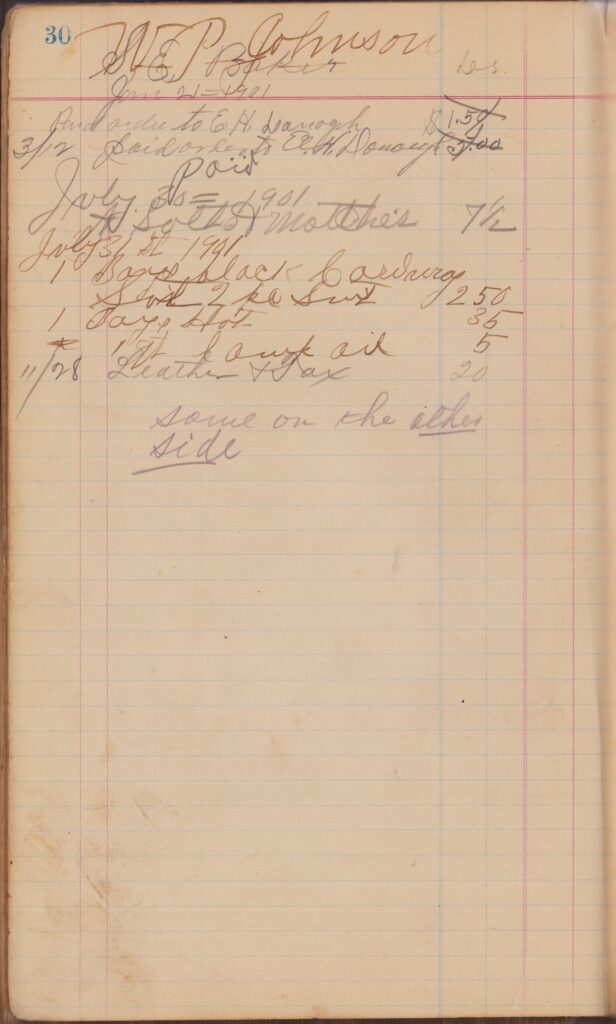 30 W. P. Johnson
S. E. Baker
Jan 21 = 1901
Paid order to E. H. Donogh $1.50
3/12 paid order to E. H. Donough 3.00
Paid
July 30 = 1901
& Matches 7 1/2
July 31st 1901
1 Boys black Corduroy
2 pc Suit 2 50
1 Boys Hat 35
1 qt Lamp oil 5
11/28 Leather & Tax 20
same on the other
side